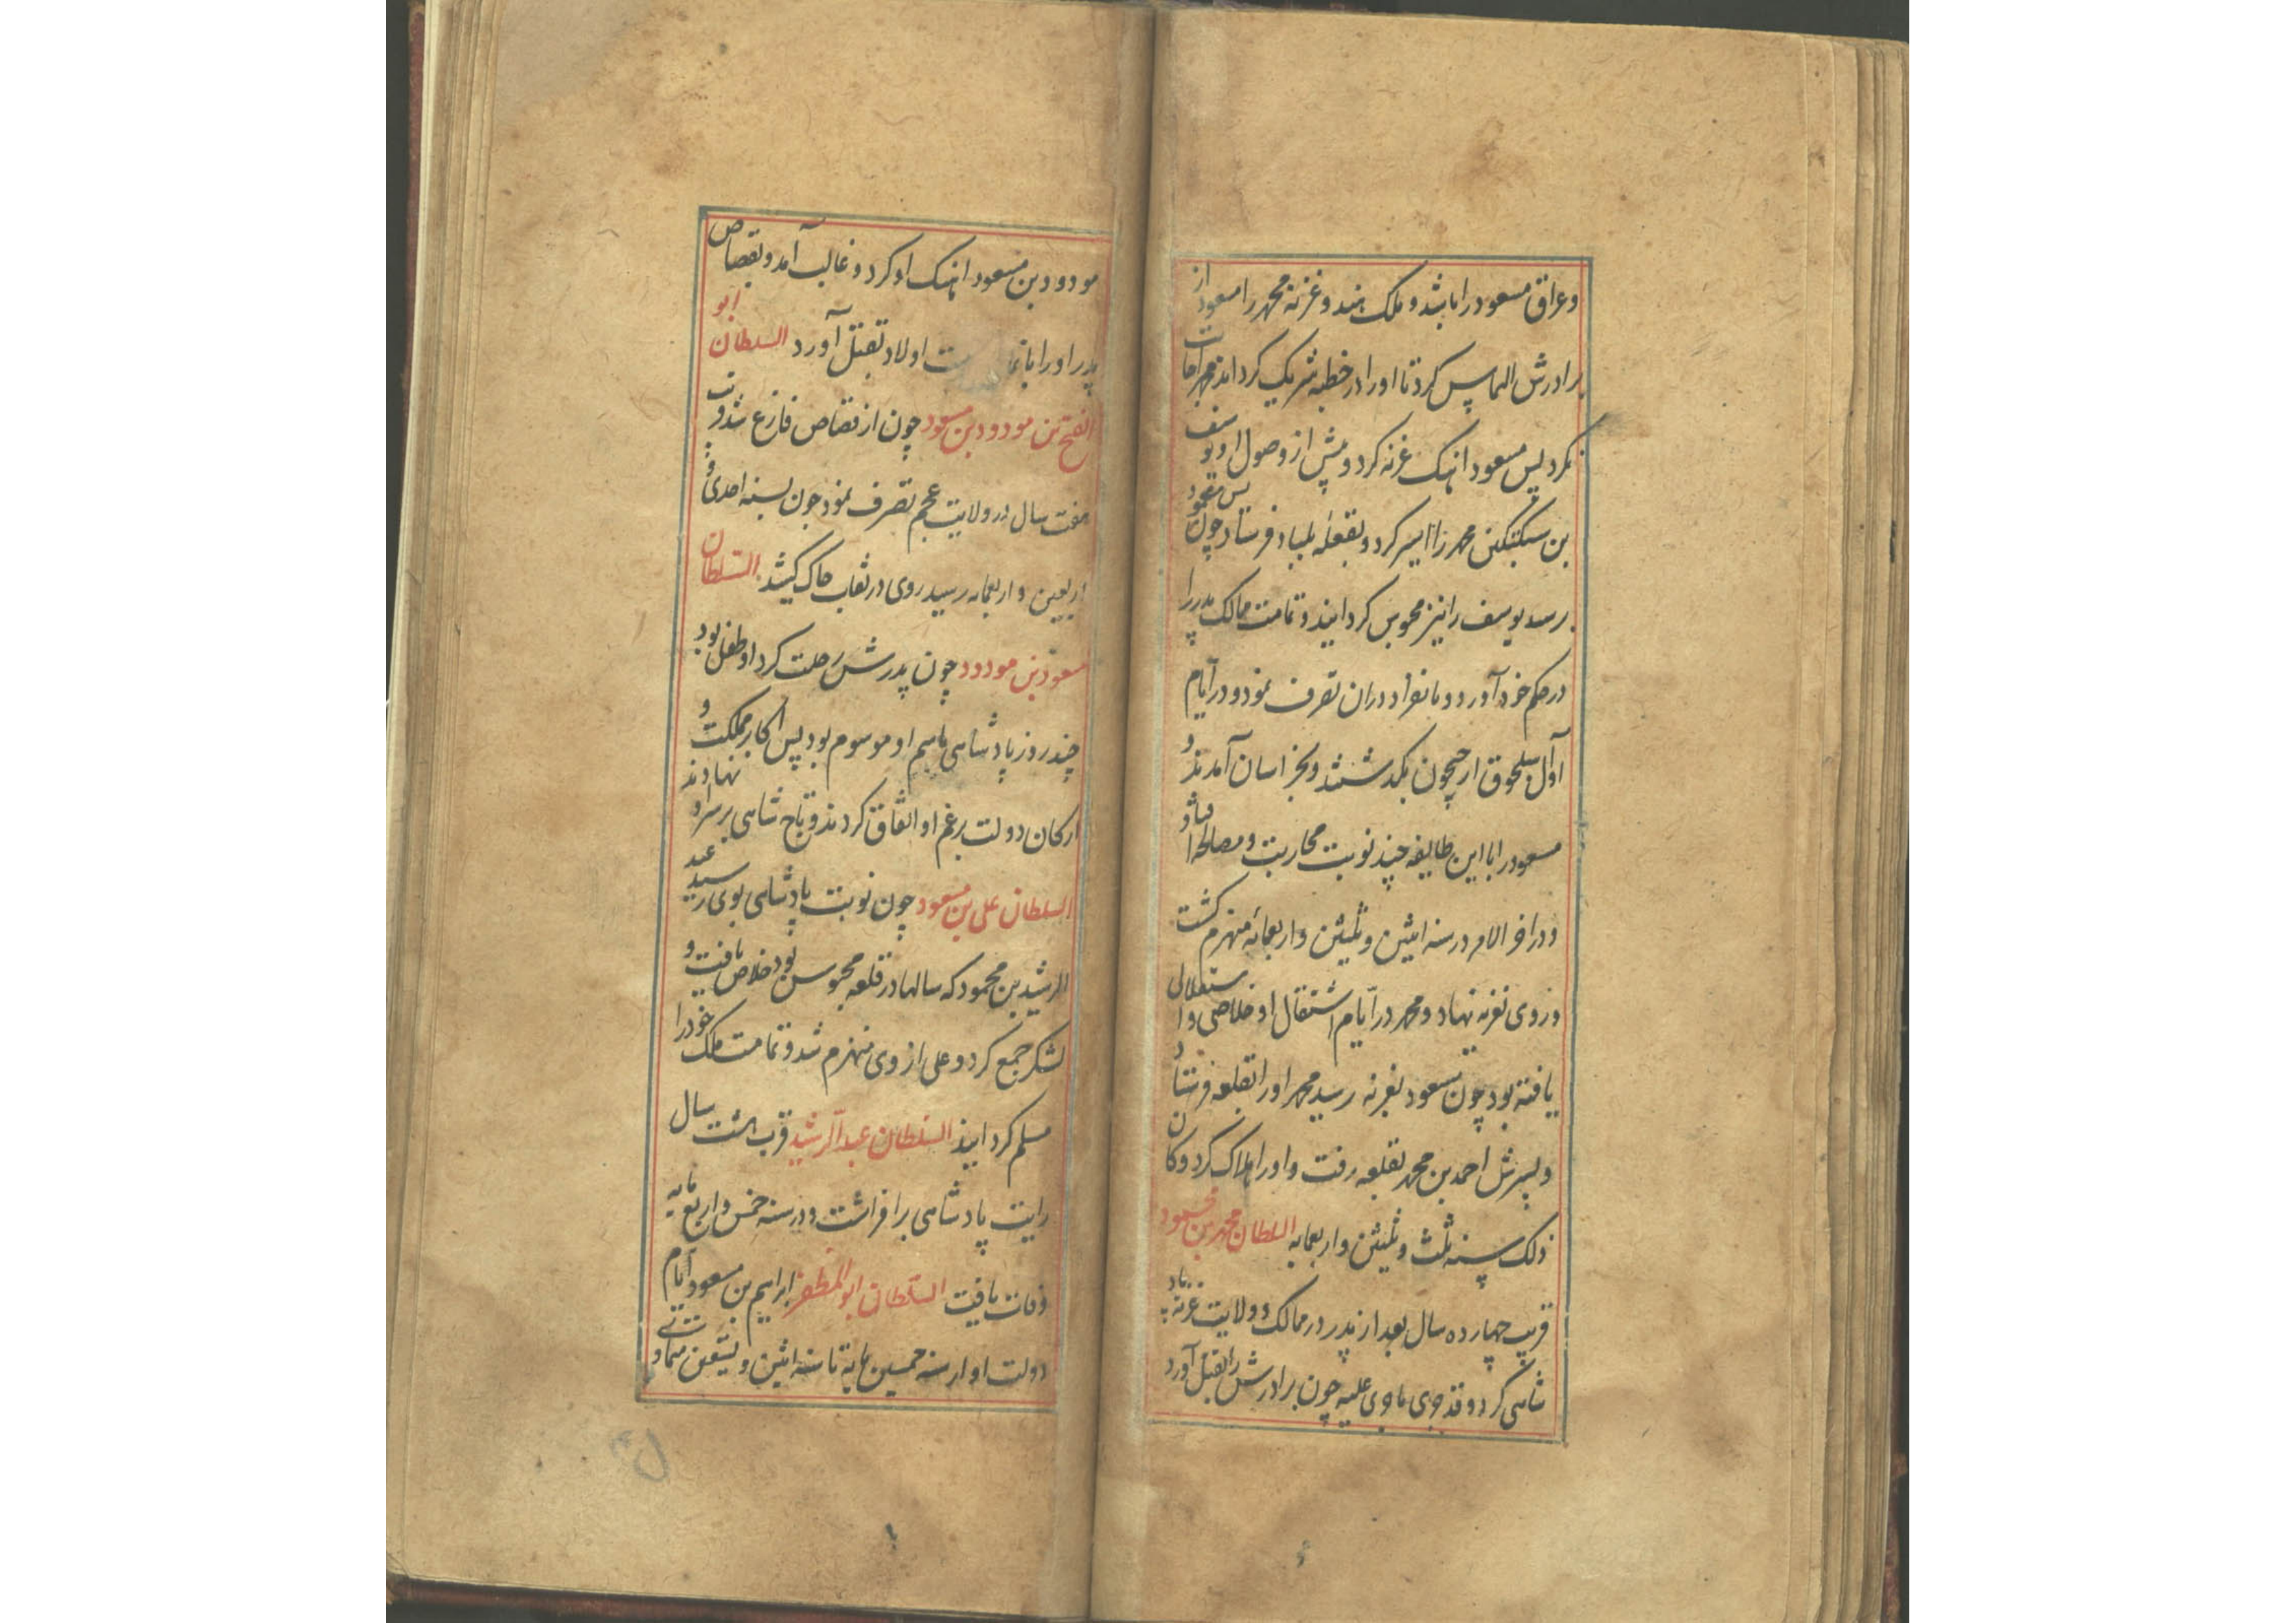 وعراق مسعود را باشد و ملک هند و غزنه محمد را مسعود از
برادرش التماس کرد تا او را در خطبه شریک گرداند محمد اجابت
نکرد پس مسعود اهنک غزنه کرد و پیش از وصول او یوسف
بن سبکتکین محمد را اسیر کرد و بقلعه فرستاد چون مسعود
برسد یوسف را نیز محبوس کردانید و تمامت ممالک پدر را
در حکم خود آورد و بانفراد دران تصرف نمود و در ایام
او آل سلجوق از جیحون بکدشتند و بخراسان آمدند و
مسعود را با این طایفه چند نوبت محاربت و مصالحه افتاد
و در اخر الامر در سنه اثنین و ثلثین و اربعمائه منهزم کشت
و روی بغزنه نهاد و محمد در ایام اشتغال او خلاصی و استقلالی
یافته بود چون مسعود بغزنه رسید محمد او را بقلعه فرستاد
و پسرش احمد بن محمد بقلعه رفت و او را هلاک کرد و کان
ذلک سنه ثلث و ثلثین و اربعمایه السلطان محمد بن محمود
قریب چهارده سال بعد از پدر در ممالک و ولایت غزنه پاد
شاهی کرد و قد جری ما جری علیه چون برادرش را بقتل آورد
مودود بن مسعود اهنک او کرد و غالب آمد و بقصاص
پدر او را با اولاد بقتل آورد السلطان ابو
الفتح بن مودود بن مسعود چون از قصاص فارغ شد قرب
هفت سال در ولایت عجم تصرف نمود چون بسنه احدی و
اربعین و اربعمایه رسید روی در نقاب خاک کشید السلطان
مسعود بن مودود چون پدرش رحلت کرد او طفل بود
چند روز پادشاهی باسم او موسوم بود پس اکابر مملکت و
ارکان دولت برغم او اتفاق کردند و تاج شاهی بر سر او نهادند
السلطان علی بن مسعود چون نوبت پادشاهی بوی رسید عبد
الرشید بن محمود که سالها در قلعه محبوس بود خلاص یافت و
لشکر جمع کرد و علی از وی منهزم شد و تمامت ملک خود را
مسلم کردانید السلطان عبد الرشید قرب هشت سال
رایت پادشاهی برافراشت و در سنه خمس و اربعمایه
وفات یافت السلطان ابو المظفر ابراهیم بن مسعود ایام
دولت او از سنه خمسین مایة تا سنه اثنین و تسعین